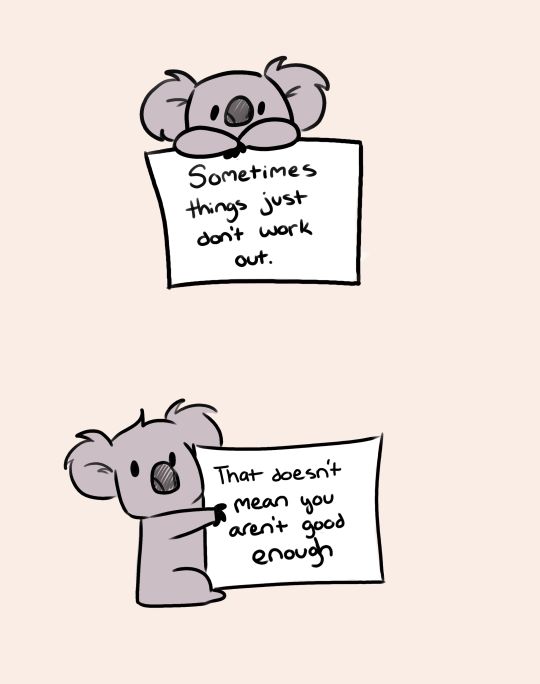 Sometimes
things just
don't work
out.
That doesn't
mean you
aren't good
enough